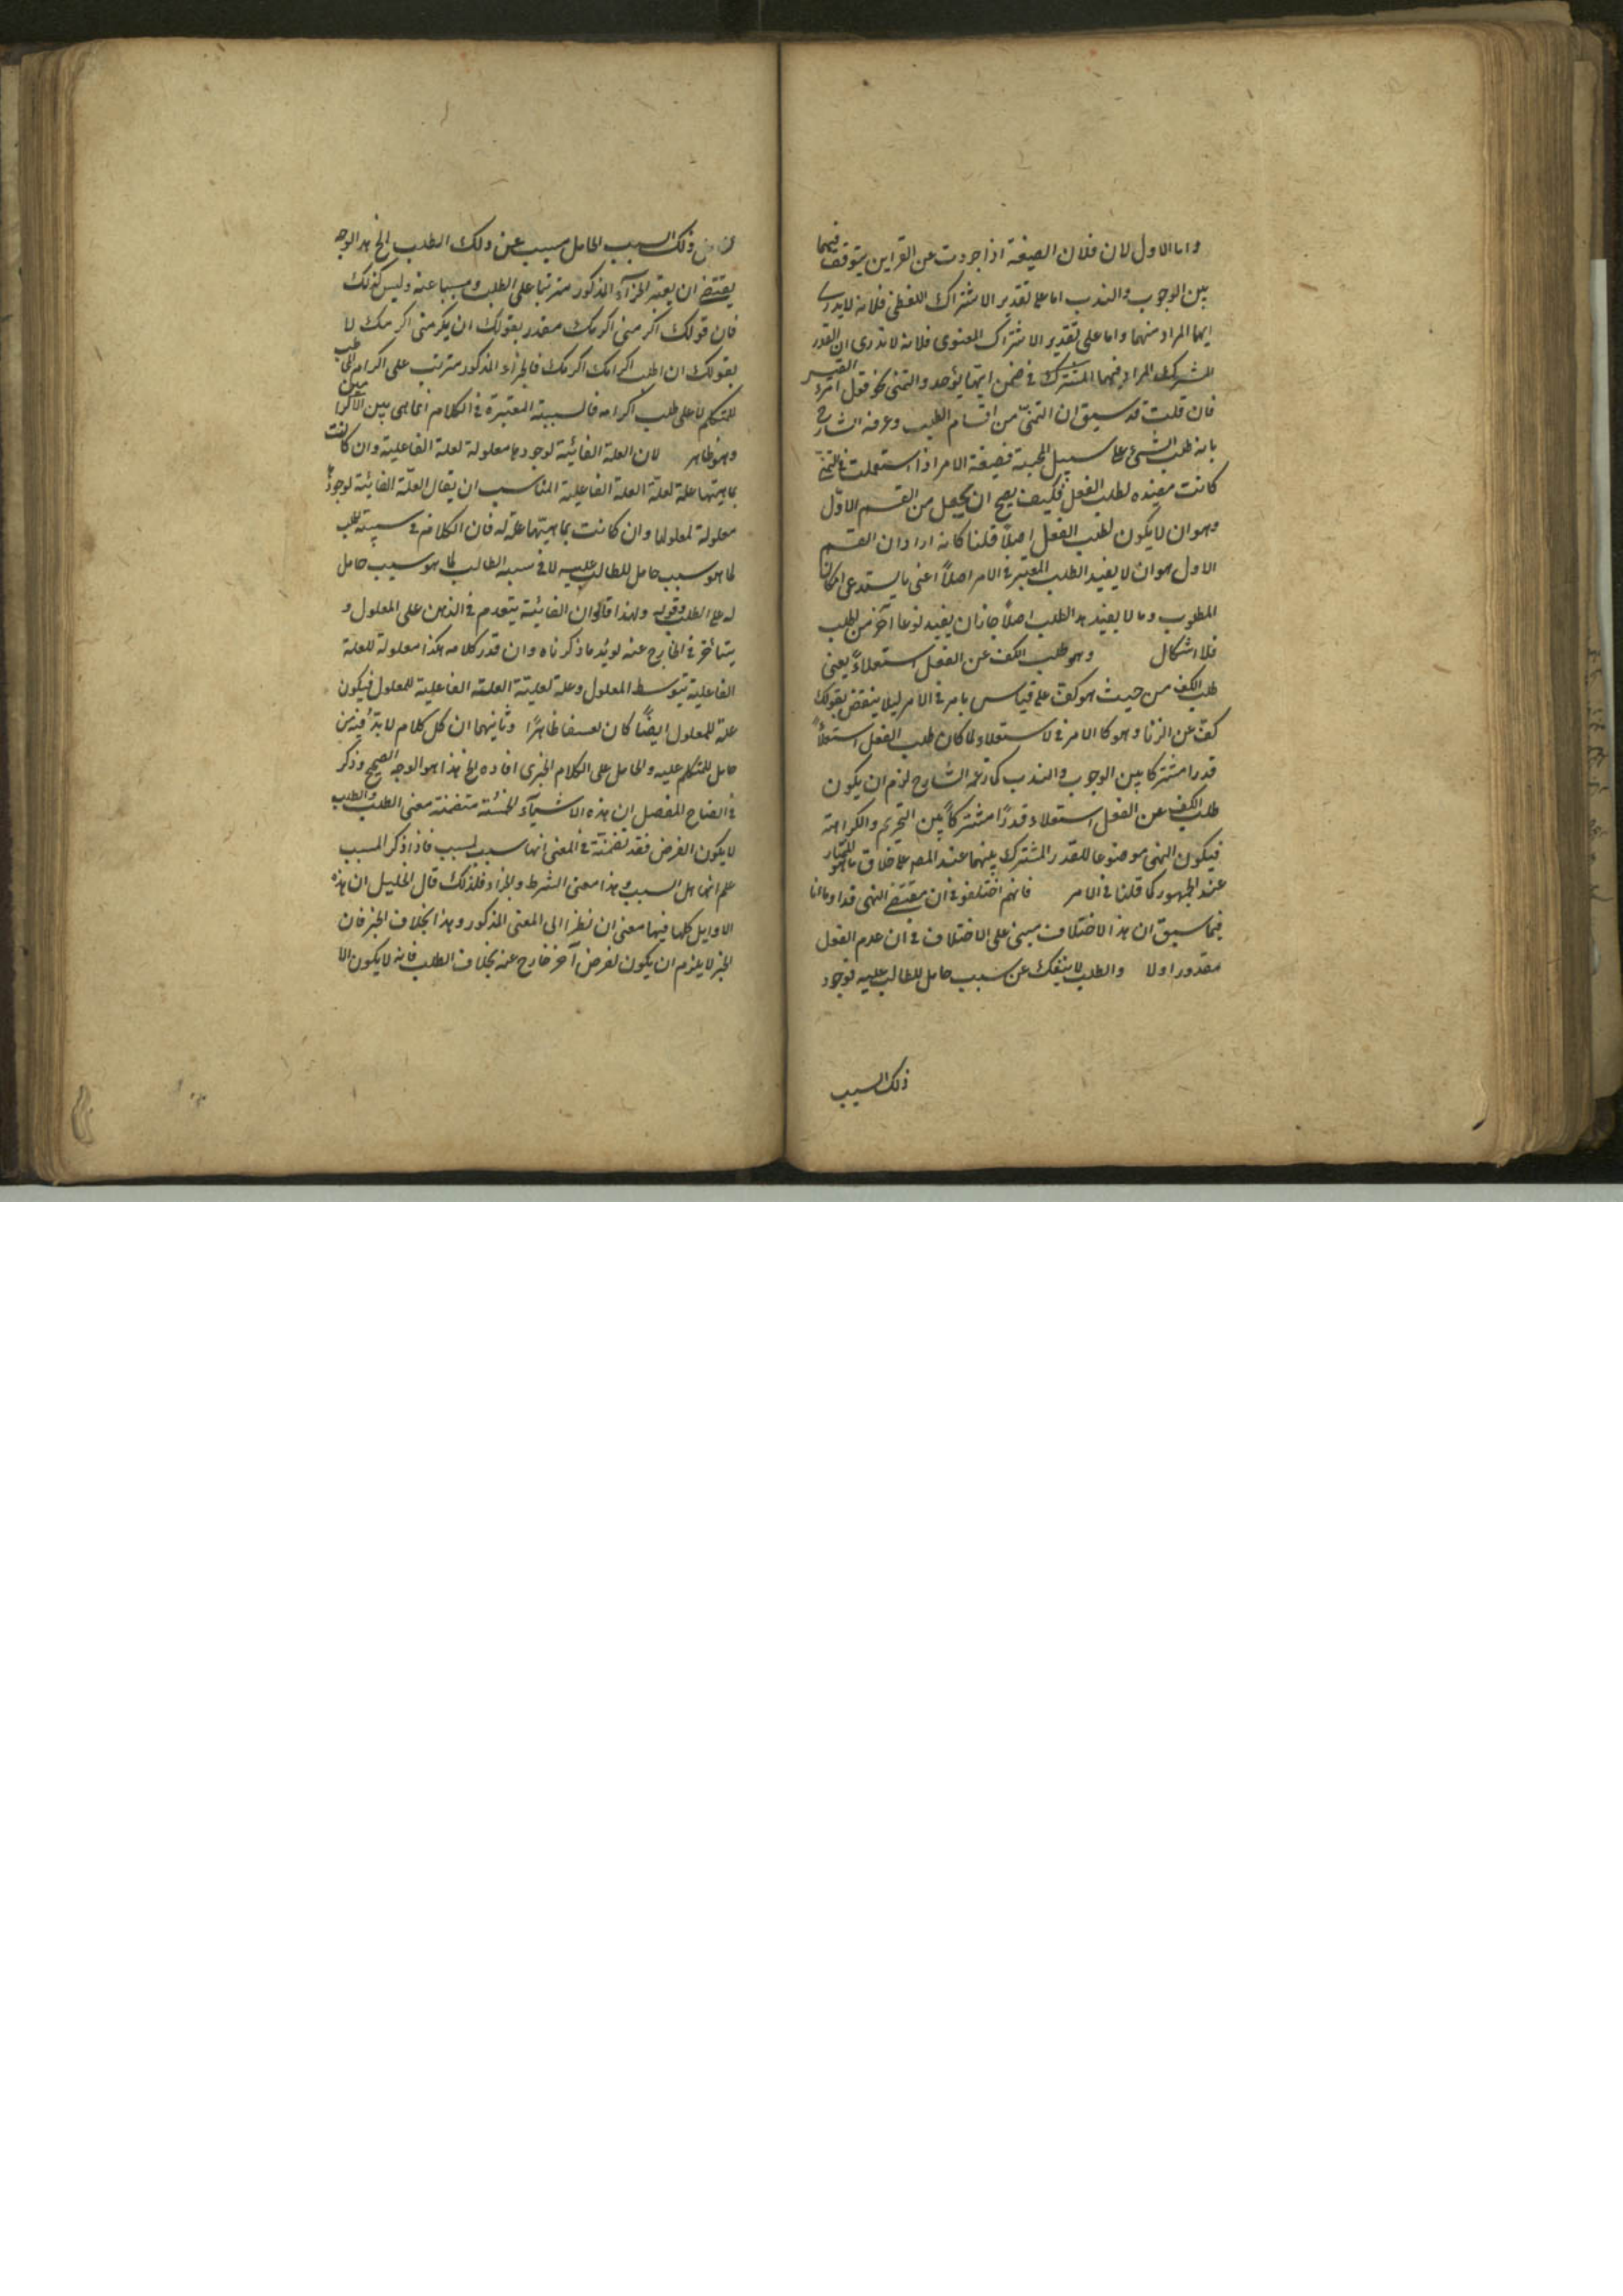 واما الاول لان فلان الصيغة اذا جردت عن القراين يتوقف فيهما
بين الوجوب والندب اما على تقدير الاشتراك اللفظى فلانه لا يدرى
ايهما المراد منهما واما على تقدير الاشتراك المعنوى فلانه لا ندرى ان القدر
المشترك المراد منهما المشترك فى ضمن ايتهما يؤخد والتمنى نحو قول امرء القيس
فان قلت قد سبق ان التمنى من اقسام الطلب وعرفه الشارح
بانه طلب الشىء على سبيل المحبة فصيغة الامر اذا استعملت فى التمنى
كانت مفيده لطلب الفعل فكيف يصح ان يجعل من القسم الاول
وهو ان لا يكون لطلب الفعل اصلاً قلنا كانه اراد ان القسم
الاول هو ان لا يفيد الطلب المعتبر فى الامر اصلاً اعنى ما يستدعى امكان
المطلوب وما لا يفيد هد الطلب اصلاً جاز ان يفيد نوعا آخر من الطلب
فلا اشكال وهو طلب الكف عن الفعل استعلاءً يعنى
طلب الكف من حيث هو كف على قياس ما مر فى الامر ليلا ينتقض بقولك
كف عن الزنا وهو كالامر فى الاستعلاء لما كان طلب الفعل استعلاً
قدرا مشتركا بين الوجوب والندب كما زعمه الشارح لزم ان يكون
طلب الكف عن الفعل استعلاء قدرًا مشتركاً بين التحريم والكراهة
فيكون النهى موضوعا للقدر المشترك بينهما عند المص على خلاف ما هو المختار
عند الجمهور كما قلنا فى الامر فانهم اختلفو فى ان مقتضى النهى قد اومانا
فيما سبق ان هذ الاختلاف مبنى على الاختلاف فى ان عدم الفعل
مقدور اولا والطلب لا ينفك عن سبب حامل للطالب عليه فوجود
ذلك السبب
ذلك السبب الحامل مسبب عن ذلك الطلب الخ هد الوجه
يقتضى ان يعتبر الجزآء المذكور مترتبا على الطلب ومسببا عنه وليس كذلك
فان قولك اكرمنى اكرمك مقدر بقولك ان يكرمنى اكرمك لا
بقولك ان اطلب اكرامك اكرمك فالجزاء المذكور مترتب على اكرام المخاطب
للمتكلم لا على طلب اكرامه فالسببية المعتبرة فى الكلام انما هى بين الاكرامين
وهو ظاهر لان العلة الغائية لوجودها معلولة لعلة الفاعلية وان كانت
بماهيتها علة لعلية العلة الفاعلية المناسب ان يقال العلّة الغائية لوجودها
معلولة لمعلولها وان كانت بماهيتها علة له فان الكلام فى سببية الطلب
لما هو سبب حامل للطالب عليه لا فى سببه الطالب لما هو سبب حامل
له على الطلب وقوله ولهذا قالوا ان الغائية يتقدم فى الذهن على المعلول و
يتأخر فى الخارج عنه يويد ما ذكرناه وان قدر كلامه هكذا معلولة للعلة
الفاعلية بتوسط المعلول وعلة لعليّة العلة الفاعلية للمعلول فيكون
علة للمعلول ايضاً كان تعسفا ظاهرًا وثانيهما ان كل كلام لا بد فيه من
حامل للمتكلم عليه والحامل على الكلام الخبرى افاده الخ هذا هو الوجه الصحيح وذكر
فى ايضاح المفصل ان هذه الاشيآء الخمسة متضمنة معنى الطلب والطلب
لا يكون الغرض فقد تضمنة فى المعنى انها سبب لمسبب فاذا ذكر المسبب
علم انها هى السبب وهذا معنى الشرط والجزاء فلذلك قال الخليل ان هذه
الاوايل كلها فيها معنى ان نظرا الى المعنى المذكور وهذا بخلاف الخبر فان
الخبر لا يلزم ان يكون لغرض آخر خارج عنه بخلاف الطلب فانه لا يكون الا